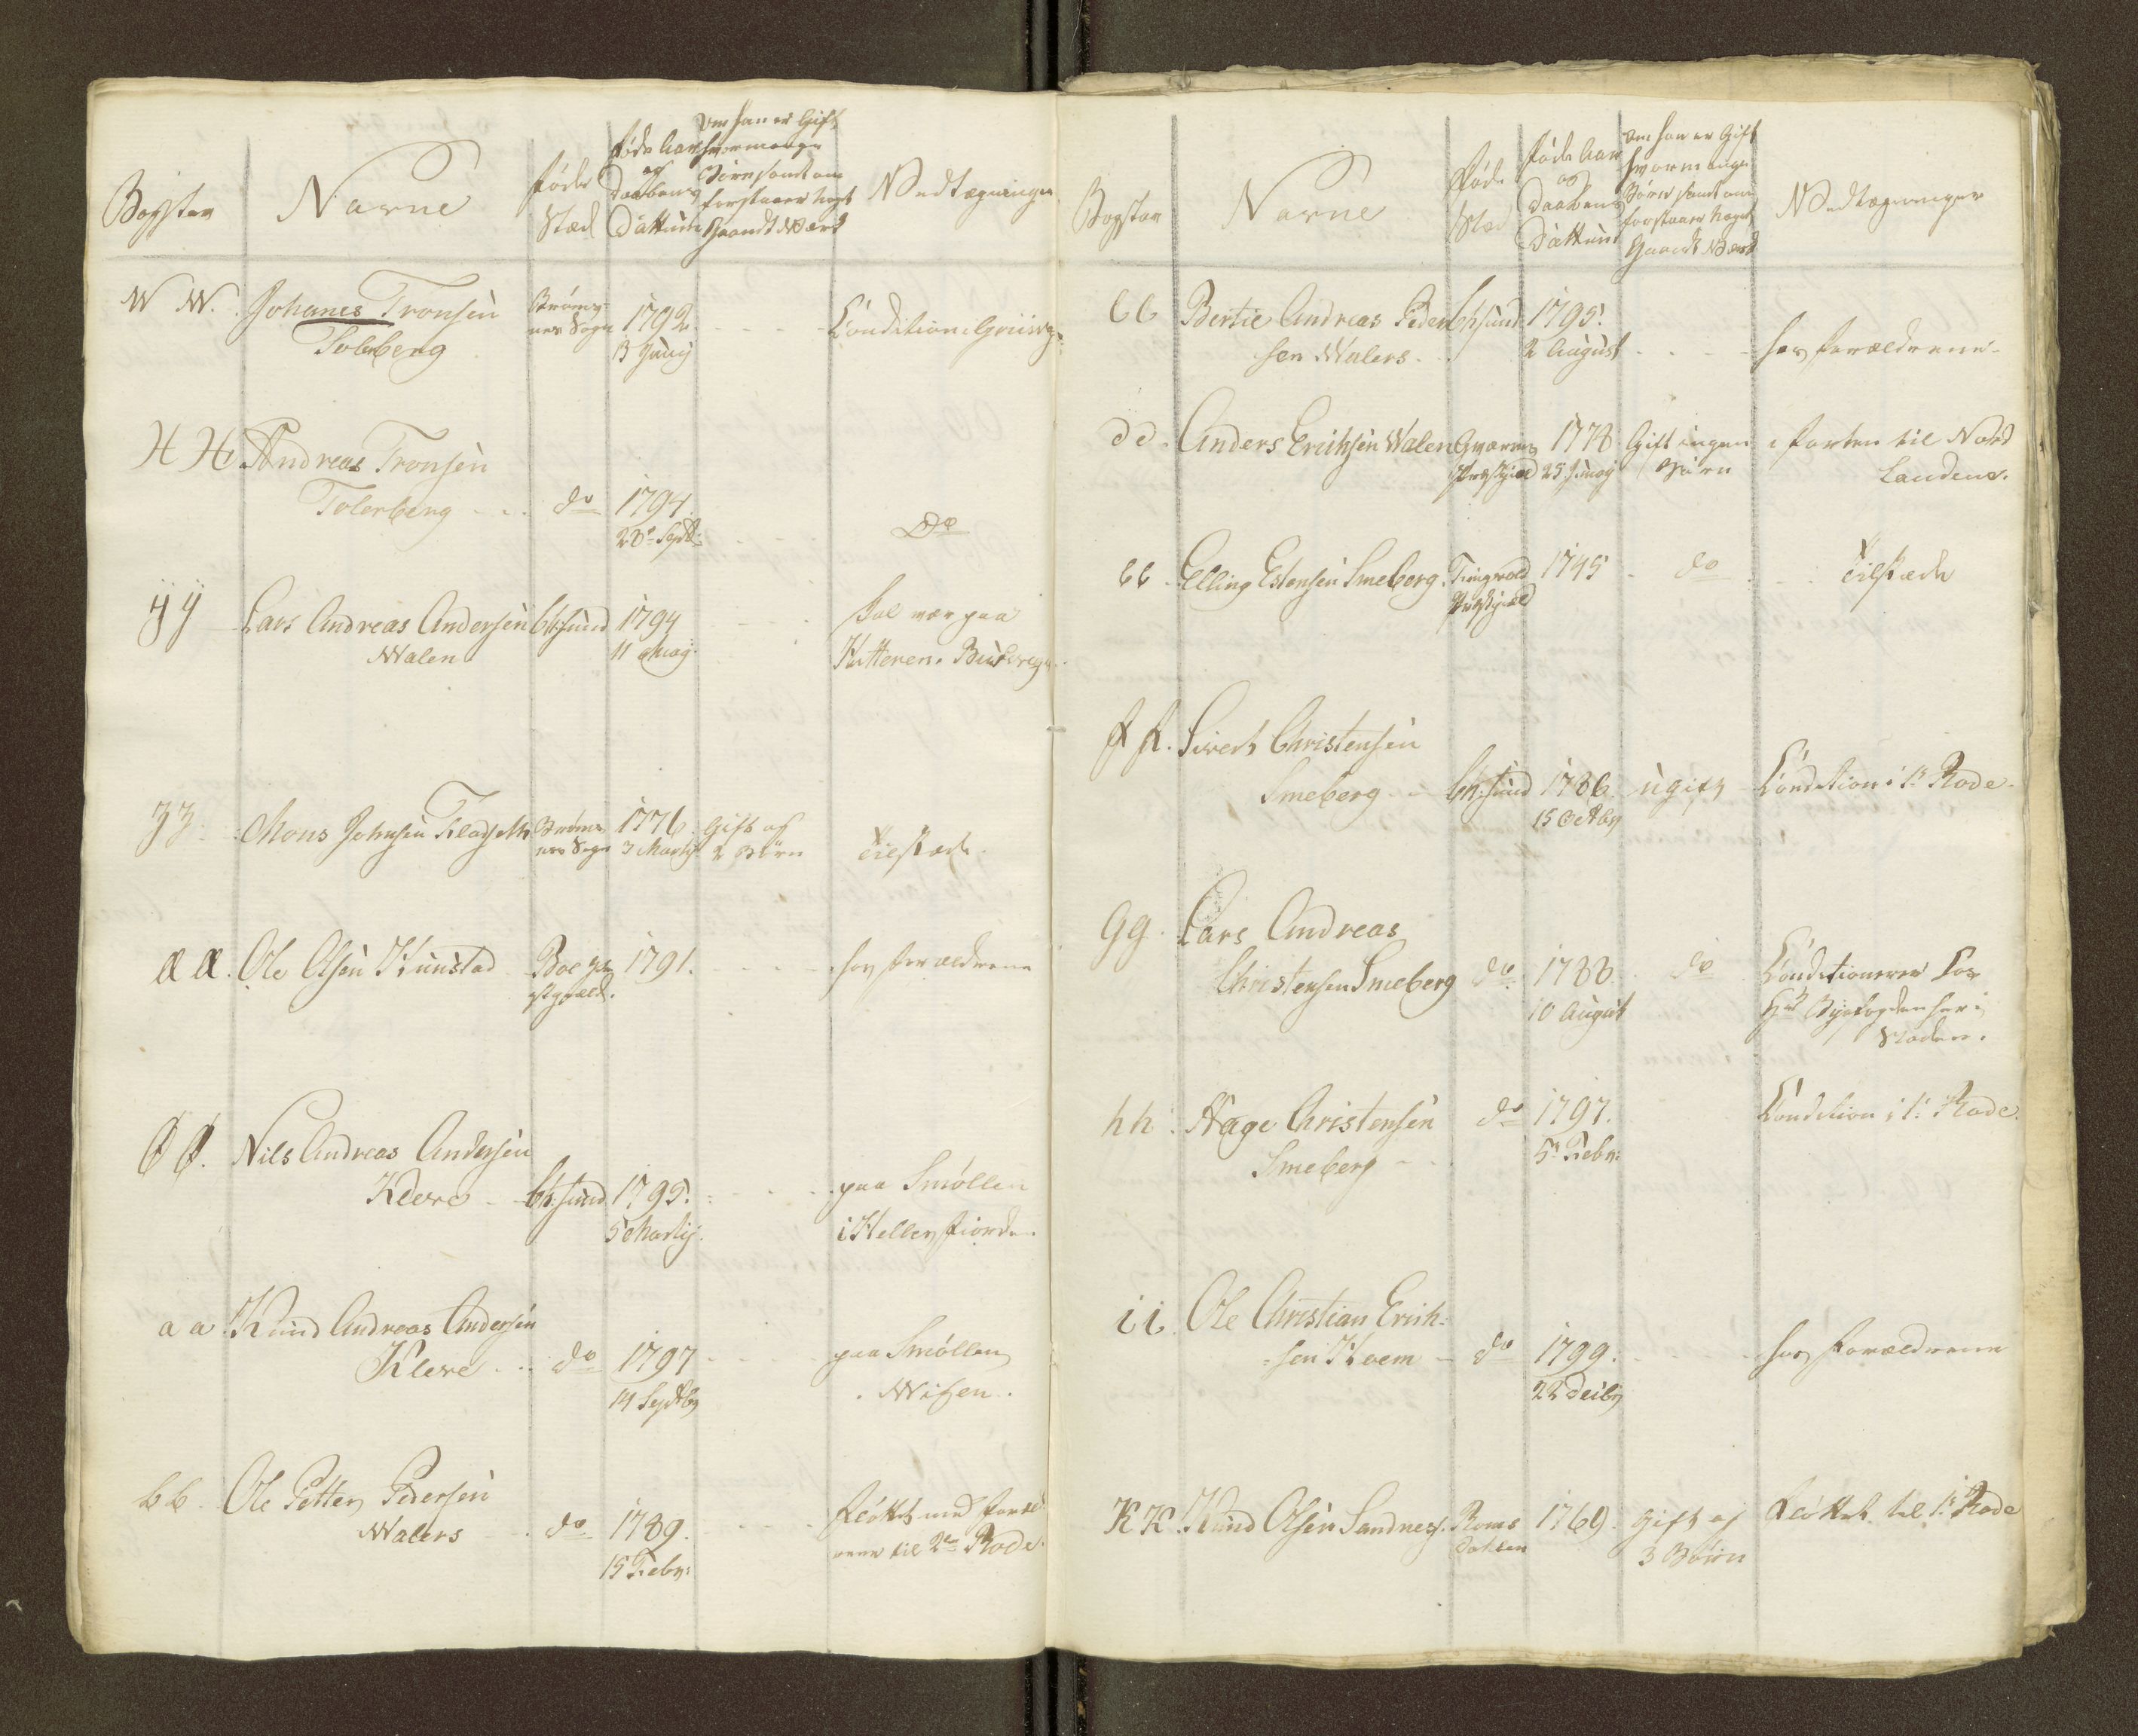 Bogstav
Navne
føde
Stæd
føde Aar
og
Daabens
Dattum
Om han er Gift
hvormange
Børn samt om
forstaaer noget
Haandt Værk
Vedtægninger
W W. Johanes Tronsen
Tolerberg
nes Sogn
1792
13 Junij
Condition i
H H. Andreas Tronsen
Tolerberg
do
1794.
28de Sept:
Do
ÿ ÿ Lars Andreas Andersen
Walen
Ch:sund
1794
11 Maÿ
Skal være paa
Hitteren.
Z Z. Mons Johnsen
nes Sogn
1776
3 Martij
Gift og
2 Børn
Tilstæde.
Æ Æ. Ole Olsen Hunstad
Boe
1791.
hos forældrene
Ø Ø. Nils Andreas Andersen
Kleve
Ch:sund
1795.
5 Martij.
paa Smøllen
i
a a Knud Andreas Andersen
Kleve
do
1797
14 Septbr
paa Smøllen
b b. Ole Petter Pedersen
Walers
do
1789.
15 Febr:
fløttet med foræld
rene til 2den Rode.
Bogstav
Navne
Føde
Stæd
føde Aar
og
Daabens
Dattum
Om han er Gift
hvormange
Børn samt om
forstaaer noget
Haandt Værk
Vedtægninger
c c Bertie Andreas Peder
sen Walers.
Ch:sund
1795.
2 August
hos forældrene
d d. Anders Erichsen Walen
Præstgield
1778
25 Junij
Gift ingen
Børn
farten til Nord
Landene.
e e. Elling Estensen Smeberg.
Tingvold
Præstgield
1745
do
Tilstæde
f f. Sivert Christensen
Smeberg
Ch:sund
1786.
15 Octbr
ugift
Condition i 1te Rode.
g g. Lars Andreas
Christensen Smeberg
do
1788.
10 August
do
Conditionerer hos
Hr Byefogden her i
Staden.
h h. Hage Christensen
Smeberg
do
1797.
5te Febr:
Condition i 1te Rode
i i. Ole Christian Erich-
sen Hoem
do
1799.
22 Decbr
hos Forældrene
K K. Knud Olsen Sandnes.
Roms
dahlen
1769.
Gift og
3 Børn
Fløttet til 1te Rode